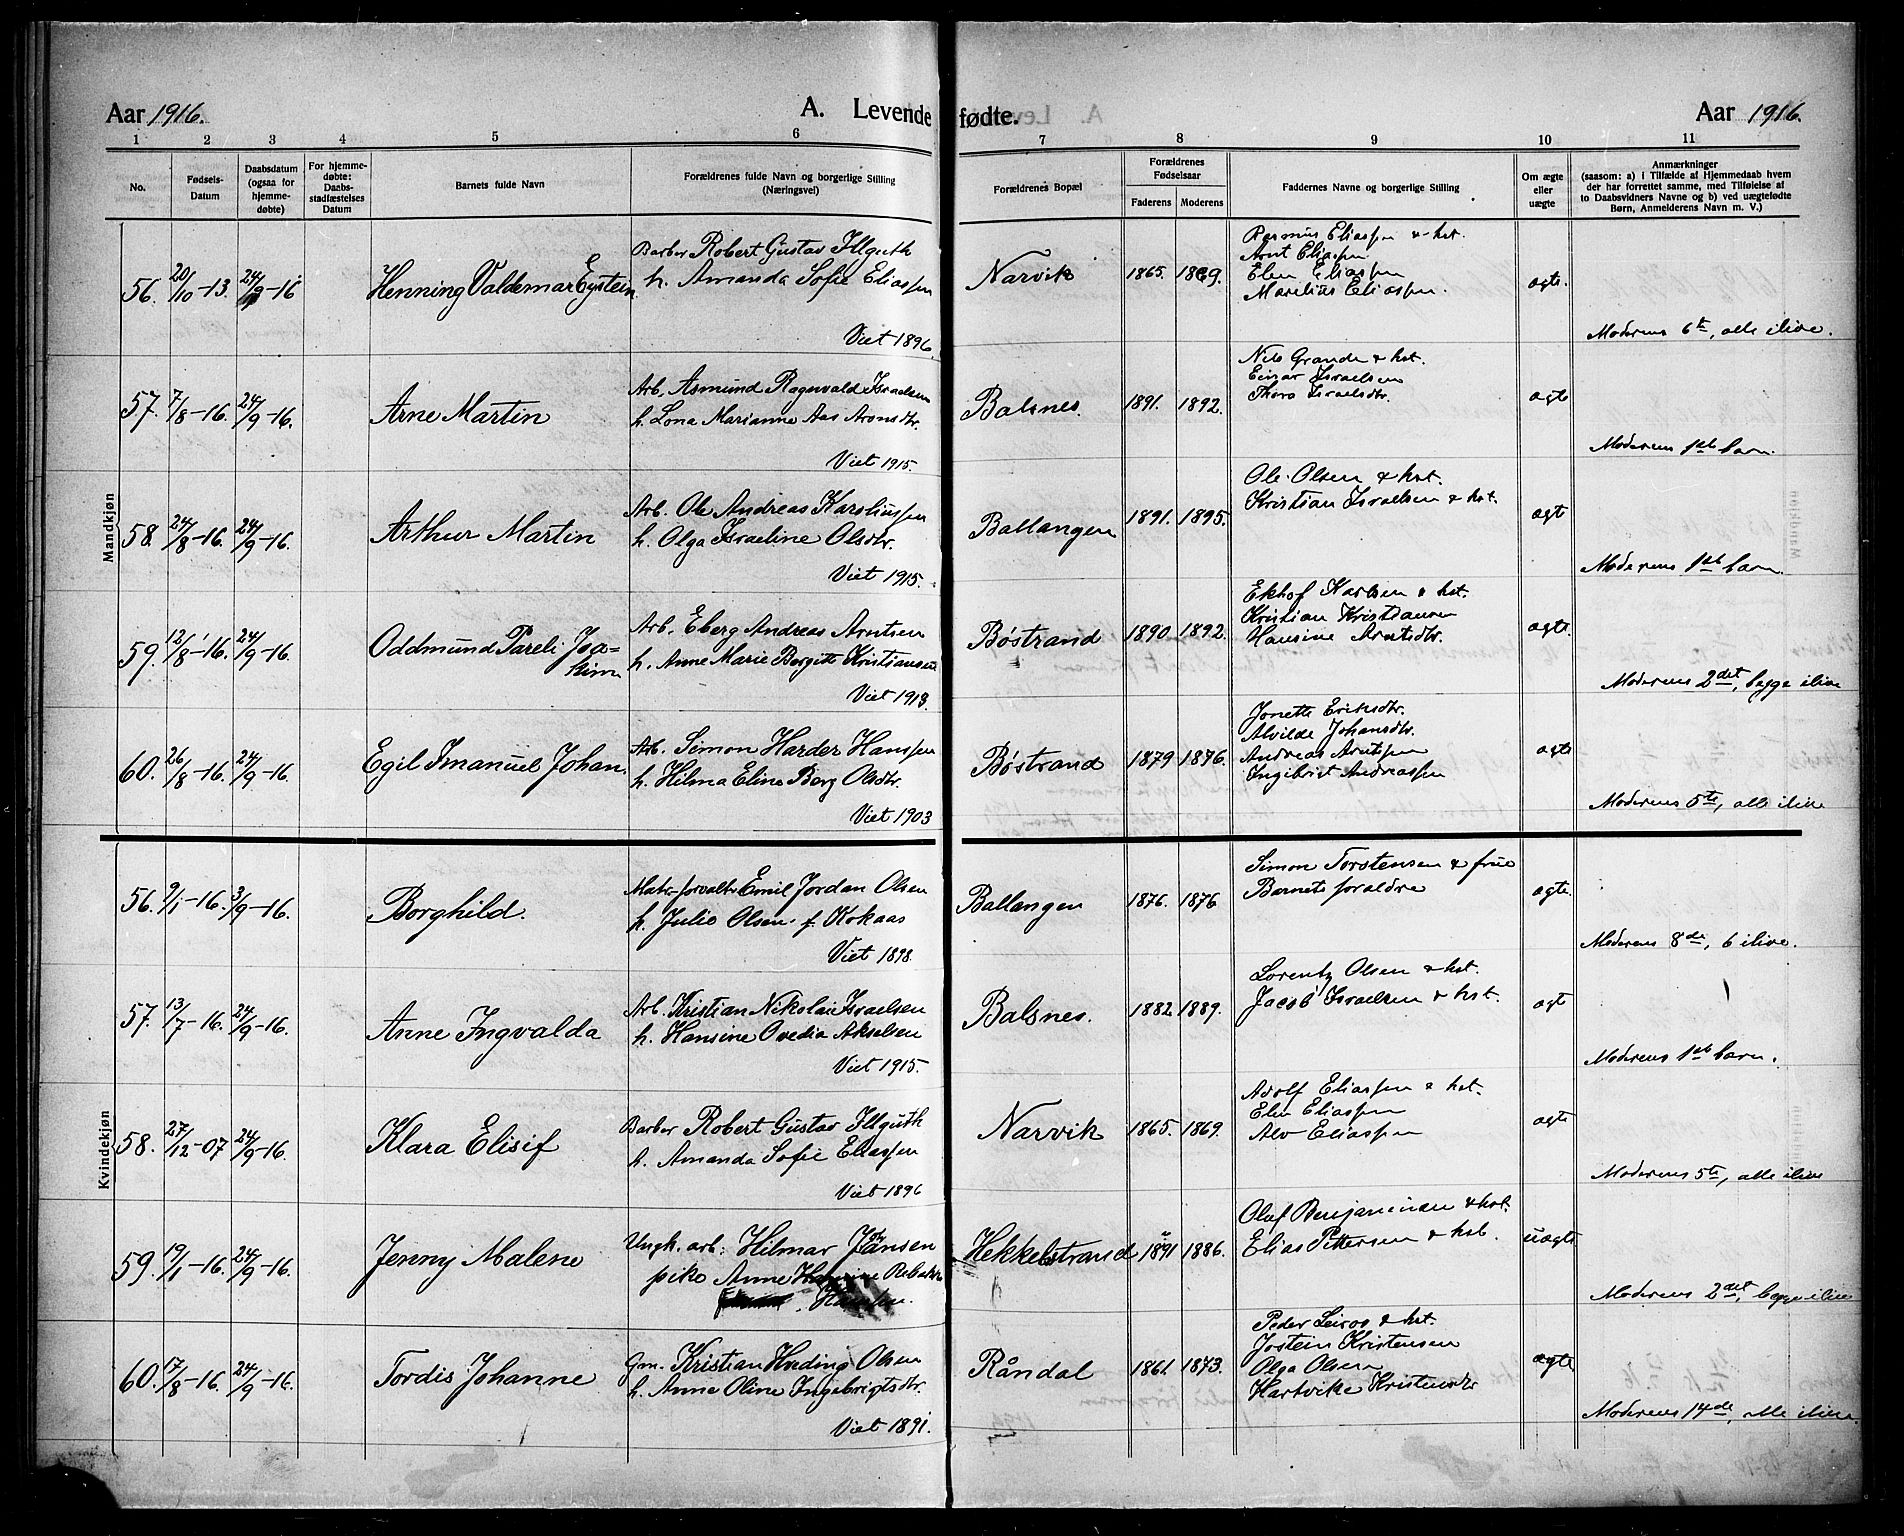 Aar 1916.
A. Levende fødte.
Aar 1916.
1 2 3 4 5 6 7 8 9 10 11
No.
Fødsels-
Datum
Daabsdatum
(ogsaa for
hjemme-
døbte)
For hjemme-
døbte:
Daabs-
stadfæstelses
Datum
Barnets fulde Navn
Forældrenes fulde Navn og borgerlige Stilling
(Næringsvei)
Forældrenes Bopæl
Forældrenes
Fødselsaar
Faderens Moderens
Faddernes Navne og borgerlige Stilling
Om ægte
eller
uægte
Anmærkninger
(saasom: a) i Tilfælde af Hjemmedaab hvem
der har forrettet samme, med Tilføielse af
to Daabsvidners Navne og b) ved uægtefødte
Børn, Anmelderens Navn m. V.)
Mandkjøn
56. 20/10-13. 24/9-16 Henning Valdemar Eystein.
Barber Robert Gustav Illguth
h. Amanda Sofie Eliassen
Viet 1896.
Narvik 1865. 1869.
Rasmus Eliassen & hst.
Arnt Eliassen
Elen Eliassen
Marelius Eliassen.
ægte.
Moderens 6te, alle ilive.
57. 7/8-16. 24/9-16. Arne Martin
Arb. Asmund Ragnvald Israelsen
h. Lona Marianne Aas Aronsdtr.
Viet 1915.
Balsnes. 1891. 1892.
Nils Grande & hst.
Einar Israelsen
Thora Israelsdtr.
ægte
Moderens 1ste barn.
58. 24/8-16. 24/9-16. Arthur Martin
Arb. Ole Andreas Karoliussen
h. Olga Israeline Olsdtr.
Viet 1915.
Ballangen 1891. 1895.
Ole Olsen & hst.
Kristian Israelsen & hst.
ægte
Moderens 1ste barn.
59. 12/8-16. 24/9-16. Oddmund Pareli Joa-
kim
Arb. Eberg Andreas Arntsen
h. Anne Marie Bergitte Kristiansen
Viet 1913.
Bøstrand 1890. 1892.
Ekhof Karlsen & hst.
Kristian Kristiansen
Hansine Arntsdtr.
ægte.
Moderens 2det, begge ilive
60. 26/8-16. 24/9-16. Egil Imanuel Johan.
Arb. Simon Harder Hanssen
h. Hilma Eline Berg Olsdtr.
Viet 1903
Bøstrand 1879 1876.
Jonette Eriksdtr.
Alvilde Johansdtr.
Andreas Arntssen
Ingebrigt Andreassen
ægte
Moderens 5te, alle ilive
Kvindekjøn
56. 9/1-16. 3/9-16. Borghild.
Matr.forvalter Emil Jordan Olsen
h. Julie Olsen f. Kokaas
Viet 1898.
Ballangen 1876. 1876
Simon Torstensen & frue
Barnets forældre
ægte.
Moderens 8de, 6 ilive.
57. 13/7-16. 24/9-16. Anne Ingvalda
Arb. Kristian Nikolai Israelsen
h. Hansine Ovedia Akselsen
Viet 1915.
Balsnes. 1882 1889.
Lorentz Olsen & hst.
Jacob Israelsen & hst.
ægt
Moderens 1ste barn.
58. 27/12-07 24/9-16. Klara Elisif
Barber Robert Gustav Illguth
h. Amanda Sofie Eliassen
Viet 1896
Narvik 1865. 1869.
Adolf Eliassen & hst.
Elen Eliassen
Alv Eliassen
ægt
Moderens 5te, alle ilive
59. 19/1-16. 24/9-16. Jenny Malene
Ungk. arb: Hilmar Jansen
pike Anne Rebekka
Hansen.
Hekkelstrand 1891 1886.
Olaf Benjaminsen & hst.
Elias Pettersen & hst.
uægte.
Moderens 2det, begge ilive
60. 17/8-16. 24/9-16. Tordis Johanne
Gm. Kristian Hveding Olsen
h. Anne Oline Ingebrigtsdtr.
Viet 1891.
Råndal 1861. 1873.
Peder Leiros & hst.
Jostein Kristensen
Olga Olsen
Hartvikke Kristensdtr
ægte
Moderens 14de, alle ilive.